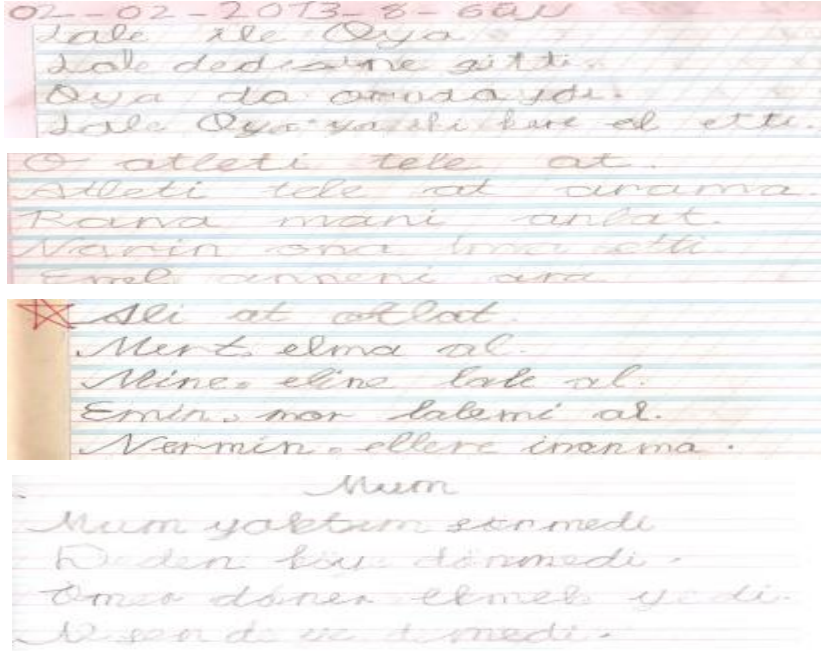 02-02-2013-8-Gün
Lale ile Oya
Lale dedesine gitti.
Oya da oradaydı.
Lale Oya'ya iki kere el etti.
O atleti tele at.
Atleti tele at arama.
Rana mani anlat.
Narin ona ima etti
Emel anneni ara
Ali at atlat.
Mert. elma al.
Mine. eline lale al.
Emin. mor lalemi al.
Nermin. ellere inanma.
Mum
Mum yaktım sönmedi
Deden köye dönmedi.
Ömer döner ekmek yedi.
sen de ye demedi.